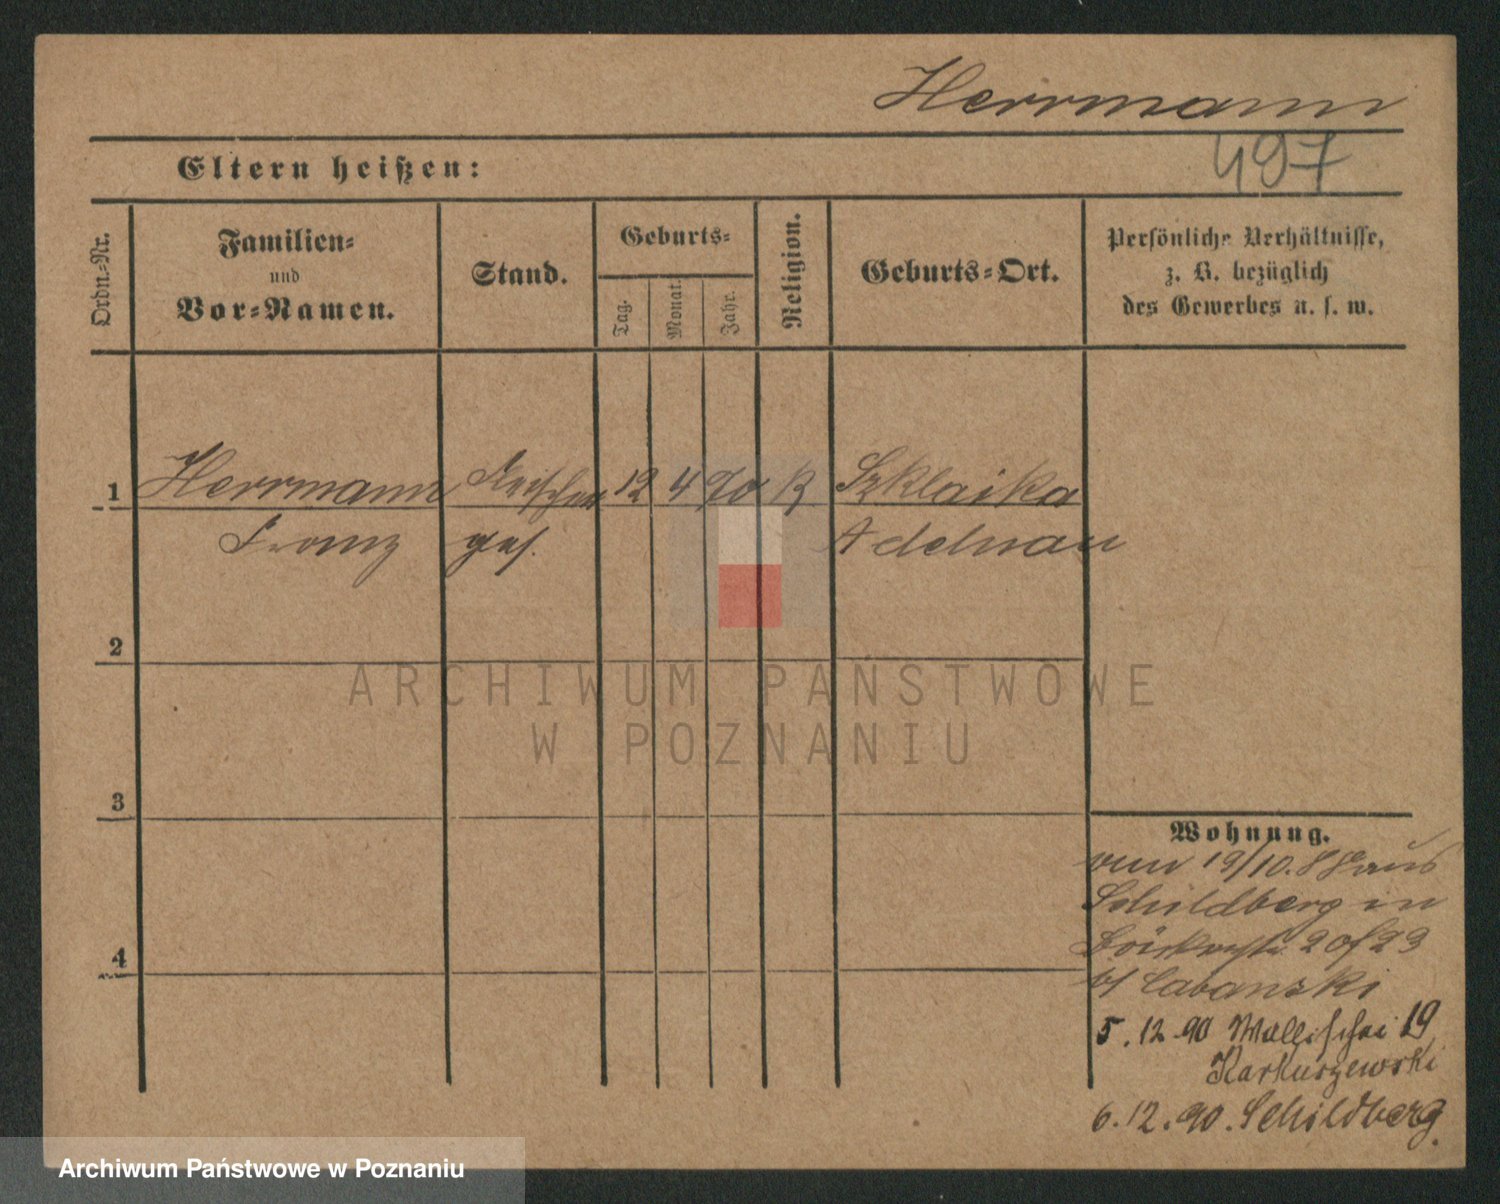 Herrmann
497
Eltern heißen:
Ordn.-Nr.
Familien-
und
Vor-Namen.
Stand.
Geburts-
Tag.
Monat.
Jahr.
Religion.
Geburts-Ort.
Persönliche Verhältnisse,
z. B. bezüglich
des Gewerbes u. s. w.
1 Herrmann 12 4 70 K Szklaika
Franz Adelnau
2
3
4
Wohnung.
19/10. aus
Schildberg in
2 of 23
Cabanski
5. 12. 90 Wallischei 19
Karkuszewski
6. 12. 90. Schildberg.
ARCHIWUM PAŃSTWOWE
W POZNANIU
Archiwum Państwowe w Poznaniu